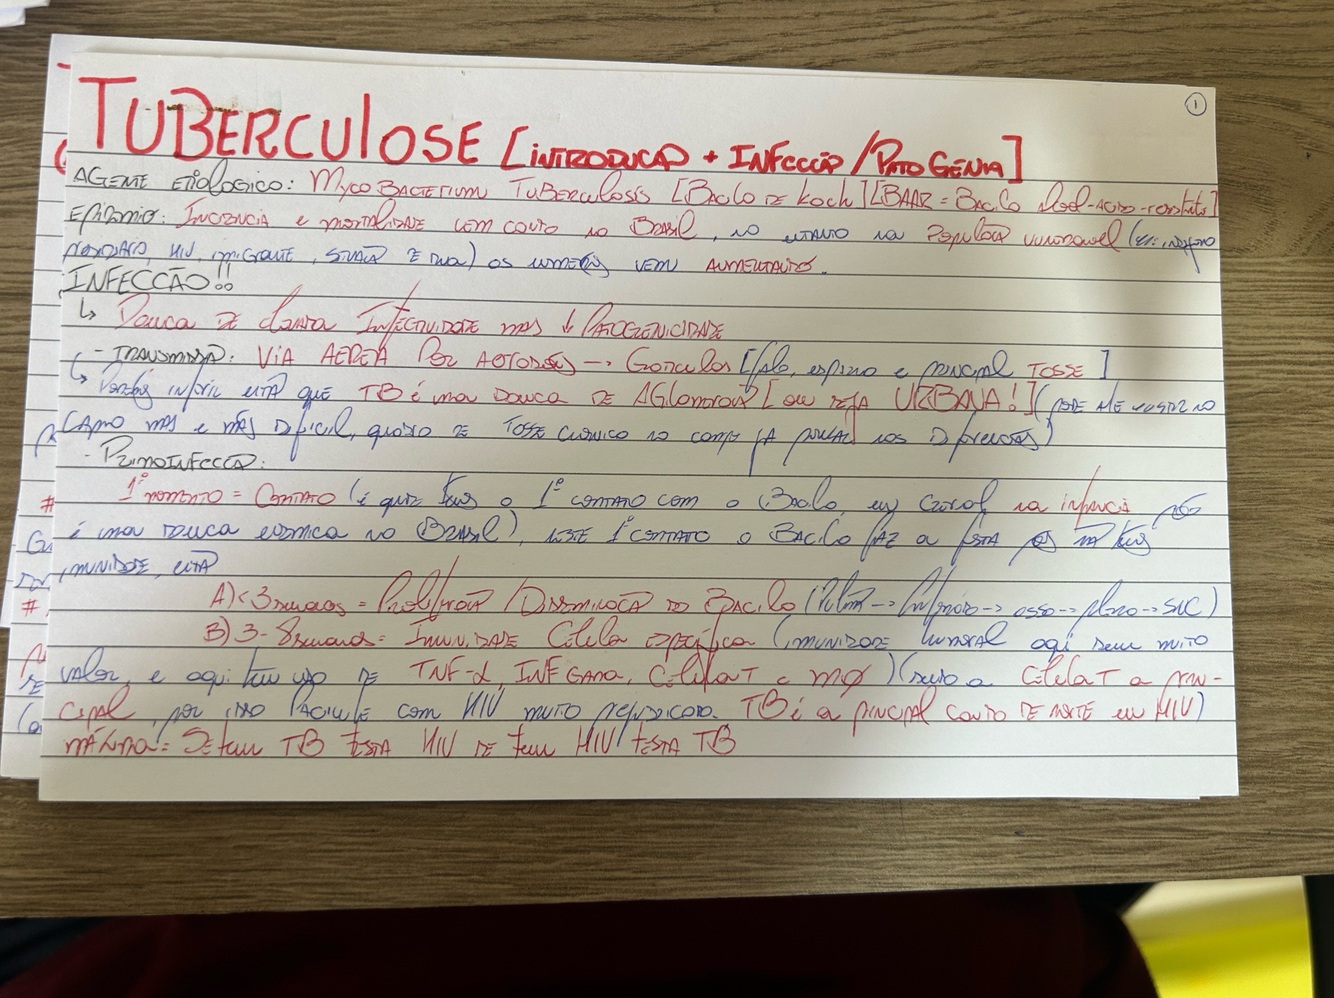 ①
TUBERCULOSE [INTRODUÇÃO + INFECÇÃO / PATOGENIA]
AGENTE ETIOLOGICO: MYCOBACTERIUM TUBERCULOSIS [BACILO DE KOCH] [BAAR = BACILO ÁLCOOL-ÁCIDO-RESISTENTE]
EPIDEMIO: INCIDENCIA E MORTALIDADE VEM CAINDO NO BRASIL, NO ENTANTO NA POPULAÇÃO VULNERAVEL (EX: INDÍGENA
PRESIDIARIO, HIV, IMIGRANTE, SITUAÇÃO DE RUA) OS NUMEROS VEM AUMENTANDO.
INFECCÃO!!
↳ DOENCA DE CLARA INFECTIVIDADE MAS ↓ PATOGENICIDADE
- TRANSMISSÃO: VIA AEREA POR AEROSSÓIS → GOTICULAS [fala, espirro e principal TOSSE]
↳ Podemos inferir então que TB É UMA DOENCA DE AGLOMERAÇÃO [OU SEJA URBANA!] (PODE ATÉ EXISTIR NO
CAMPO MAS É MAIS DIFICIL, QUEIXO DE TOSSE CRONICO NO CAMPO JA PENSAR NOS DIFERENCIAIS)
- PRIMOINFECCÃO:
1º MOMENTO = CONTATO (é que teus o 1º CONTATO COM O BACILO, em Geral na infancia pois
é uma DOENCA ENDEMICA NO BRASIL), NESTE 1º CONTATO O BACILO FAZ A FESTA pois não tems
IMUNIDADE, ENTÃO
A) < 3 semanas = PROLIFERAÇÃO / DISSEMINAÇÃO DO BACILO (PULMÃO → → OSSO → PLEURA → SNC)
B) 3 - 8 semanas = IMUNIDADE CELULAR ESPECÍFICA (IMUNIDADE HUMORAL AQUI SEM MUITO
VALOR, e aqui tem uso DE TNF-α, INF GAMA, CELULA T e MØ) (SENDO A CELULA T A PRIN-
CIPAL, por isso PACIENTE COM HIV MUITO PREJUDICADO. TB É A PRINCIPAL CAUSA DE MORTE EM HIV)
MÁXIMA: SE tem TB TESTA HIV SE tem HIV TESTA TB